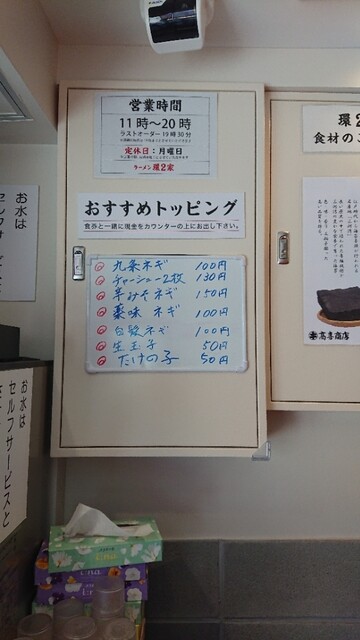 営業時間
11時～20時
ラストオーダー19時30分
定休日：月曜日
ラーメン 環2家
おすすめトッピング
食券と一緒に現金をカウンターの上にお出し下さい。
九条ネギ 100円
チャーシュー2枚 130円
辛みそネギ 150円
薬味ネギ 100円
白髪ネギ 100円
生玉子 50円
たけの子 50円
環2
食材の
髙喜商店
お水は
セルフサ
お水は
セルフサービスと